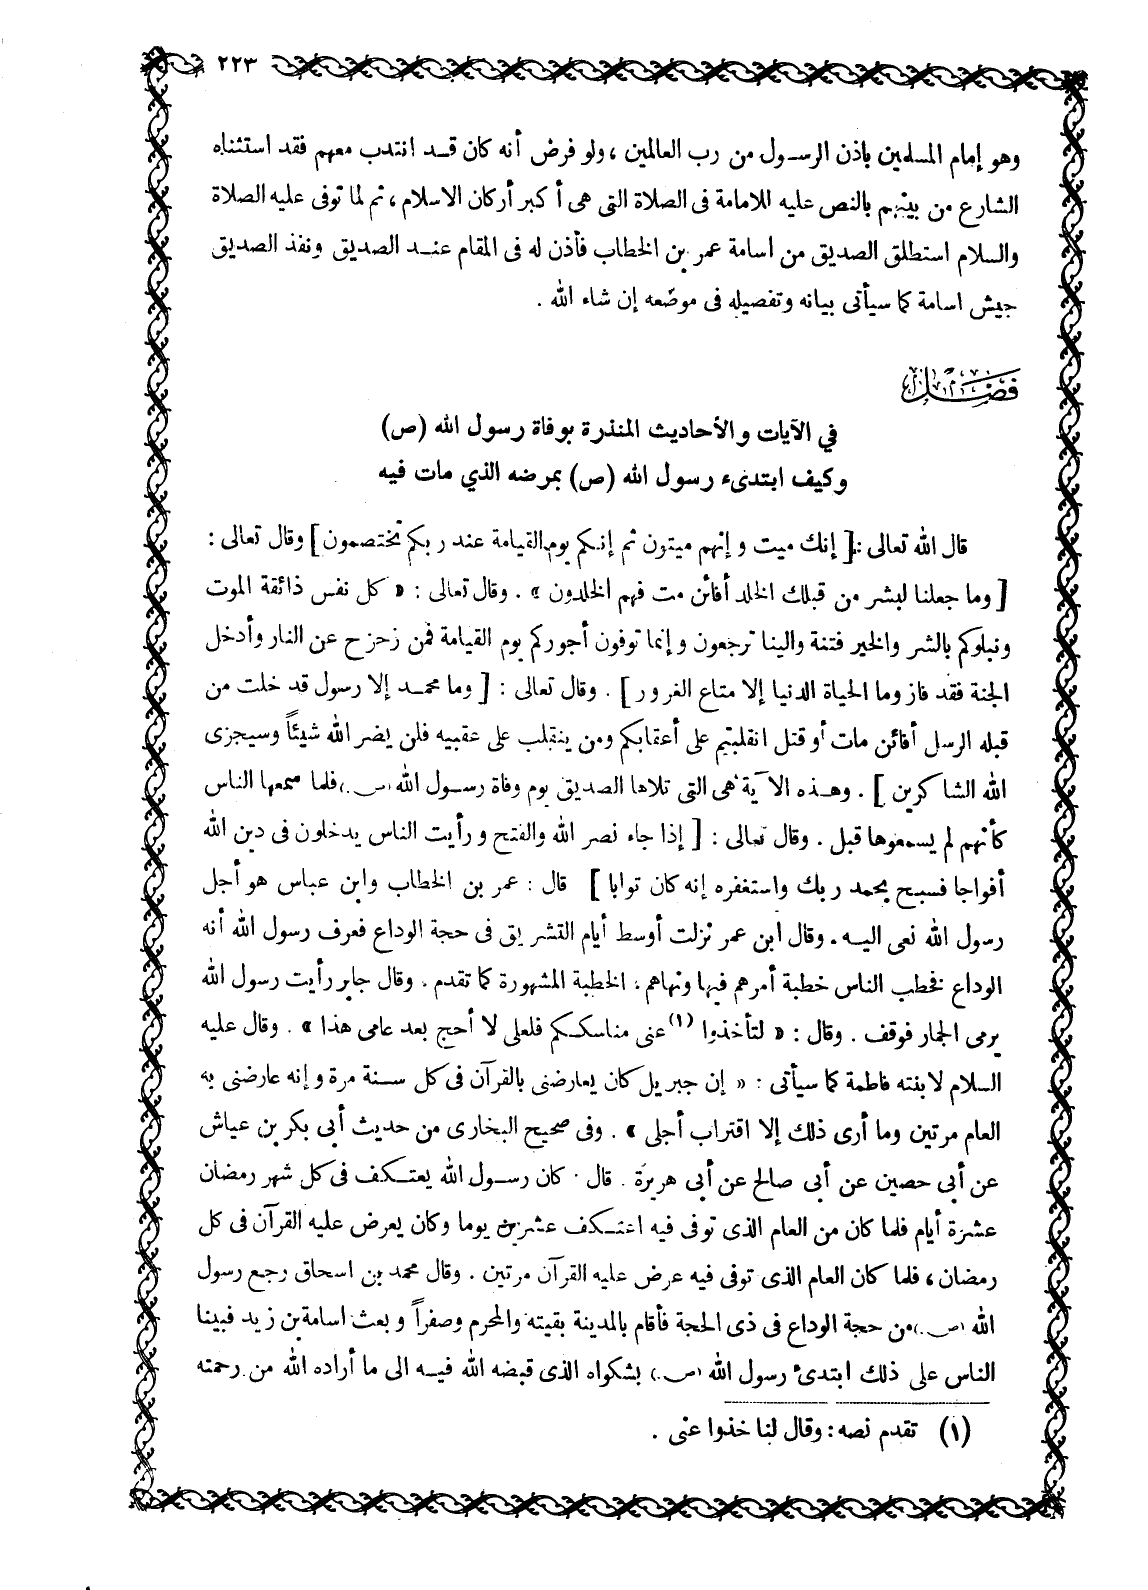 ٢٢٣
وهو إمام المسلمين باذن الرسول من رب العالمين ، ولو فرض أنه كان قد انتدب معهم فقد استثناه
الشارع من بينهم بالنص عليه للامامة فى الصلاة التى هى أكبر أركان الاسلام ، ثم لما توفى عليه الصلاة
والسلام استطلق الصديق من اسامة عمر بن الخطاب فأذن له فى المقام عند الصديق ونفذ الصديق
جيش اسامة كما سيأتى بيانه وتفصيله فى موضعه إن شاء الله .
فصل
في الآيات والأحاديث المنذرة بوفاة رسول الله (ص)
وكيف ابتدىء رسول الله (ص) بمرضه الذي مات فيه
قال الله تعالى : [ إنك ميت و إنهم ميتون ثم إنكم يوم القيامة عند ربكم تختصمون ] وقال تعالى :
[ وما جعلنا لبشر من قبلك الخلد أفائن مت فهم الخلدون » . وقال تعالى : « كل نفس ذائقة الموت
ونبلوكم بالشر والخير فتنة والينا ترجعون و إنما توفون أجوركم يوم القيامة فمن زحزح عن النار وأدخل
الجنة فقد فاز وما الحياة الدنيا إلا متاع الغرور ] . وقال تعالى : [ وما محمد إلا رسول قد خلت من
قبله الرسل أفائن مات أو قتل انقلبتم على أعقابكم ومن ينقلب على عقبيه فلن يضر الله شيئاً وسيجزى
الله الشاكرين ] . وهذه الآية هى التى تلاها الصديق يوم وفاة رسول الله (ص) فلما سمعها الناس
كأنهم لم يسمعوها قبل . وقال تعالى : [ إذا جاء نصر الله والفتح و رأيت الناس يدخلون فى دين الله
أفواجا فسبح بحمد ربك واستغفره إنه كان توابا ] قال : عمر بن الخطاب وابن عباس هو أجل
رسول الله نعى اليه . وقال ابن عمر نزلت أوسط أيام التشريق فى حجة الوداع فعرف رسول الله أنه
الوداع فخطب الناس خطبة أمرهم فيها ونهاهم ، الخطبة المشهورة كما تقدم . وقال جابر رأيت رسول الله
يرمى الجمار فوقف . وقال : « لتأخذوا (١) عنى مناسككم فلعلى لا أحج بعد عامى هذا » . وقال عليه
السلام لابنته فاطمة كما سيأتى : « إن جبريل كان يعارضنى بالقرآن فى كل سنة مرة و إنه عارضنى به
العام مرتين وما أرى ذلك إلا اقتراب أجلى » . وفى صحيح البخارى من حديث أبى بكر بن عياش
عن أبى حصين عن أبى صالح عن أبى هريرة . قال : كان رسول الله يعتكف فى كل شهر رمضان
عشرة أيام فلما كان من العام الذى توفى فيه اعتكف عشرين يوما وكان يعرض عليه القرآن فى كل
رمضان ، فلما كان العام الذى توفى فيه عرض عليه القرآن مرتين . وقال محمد بن اسحاق رجع رسول
الله (ص) من حجة الوداع فى ذى الحجة فأقام بالمدينة بقيته والمحرم وصفراً و بعث اسامة بن زيد فبينا
الناس على ذلك ابتدئ رسول الله (ص) بشكواه الذى قبضه الله فيه الى ما أراده الله من رحمته
(١) تقدم نصه : وقال لنا خذوا عنى .